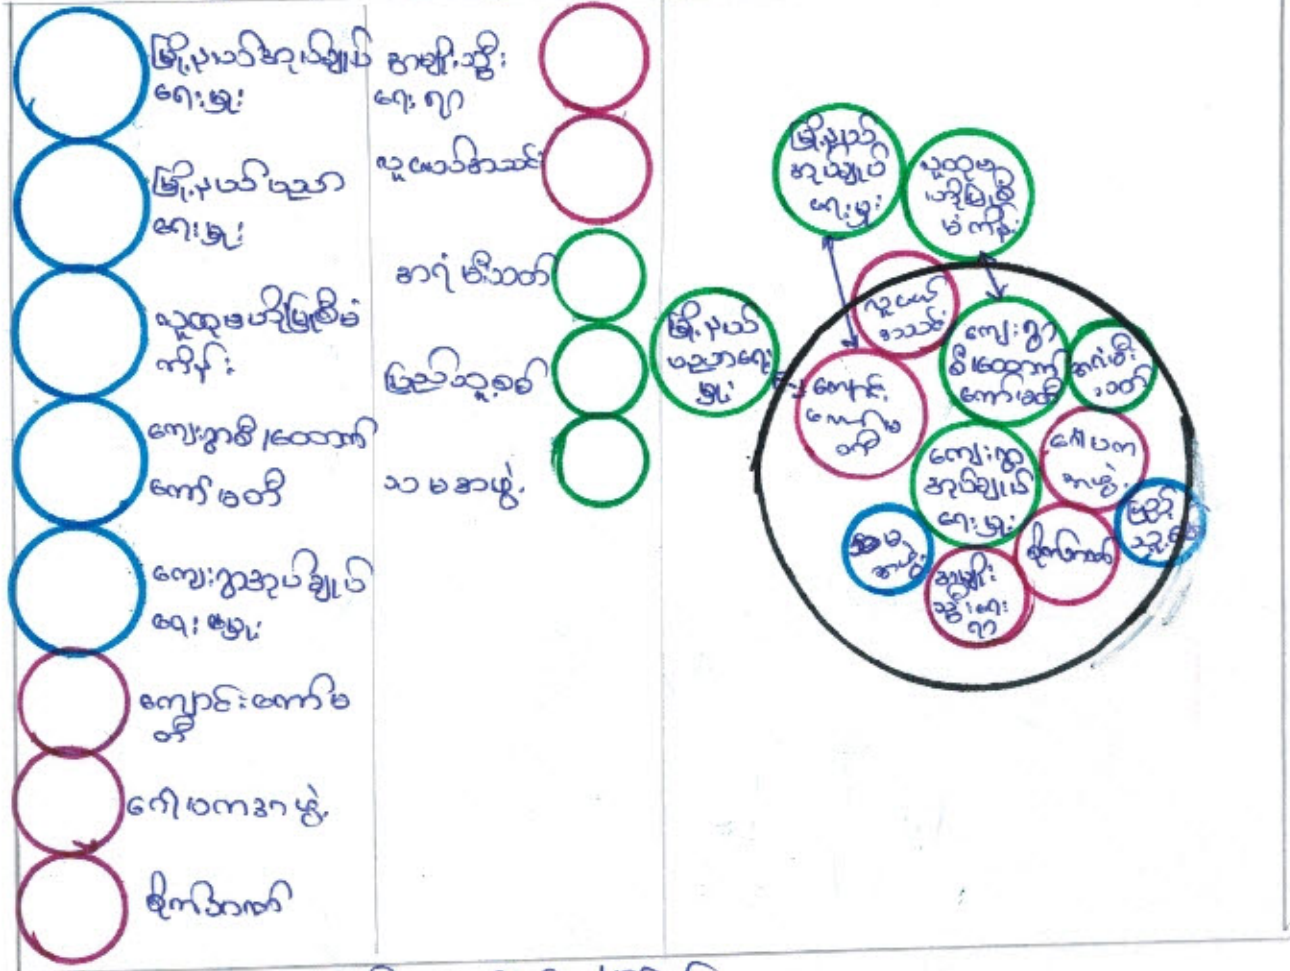 မြို့နယ်အုပ်ချုပ်
ရေးမှူး
မြို့နယ်ပညာ
ရေးမှူး
လူထုဗဟိုပြုစီမံ
ကိန်း
ကျေးရွာစီ/ထောက်
ကော်မတီ
ကျေးရွာအုပ်ချုပ်
ရေးမှူး
ကျောင်းကော်မ
တီ
ဂေါပကအဖွဲ့
စိုက်ဒဂဏ်
အမျိုးသ္မီး
ရေးရာ
လူငယ်အသင်း
အရံမီးသတ်
ပြည်သူ့စစ်
သမအဖွဲ့
မြို့နယ်
အုပ်ချုပ်
ရေးမှူး
လူထုဗ
ဟိုပြုစီ
မံကိန်း
မြို့နယ်
ပညာရေး
မှူး
လူငယ်
အသင်း
ကျေးရွာ
စီ/ထောက်
ကော်မတီ
အရံမီး
သတ်
ကျောင်း
ကော်မ
တီ
ကျေးရွာ
အုပ်ချုပ်
ရေးမှူး
ဂေါပက
အဖွဲ့
ပြည်
သူ့စစ်
သမ
အဖွဲ့
အမျိုး
သ္မီးရေး
ရာ